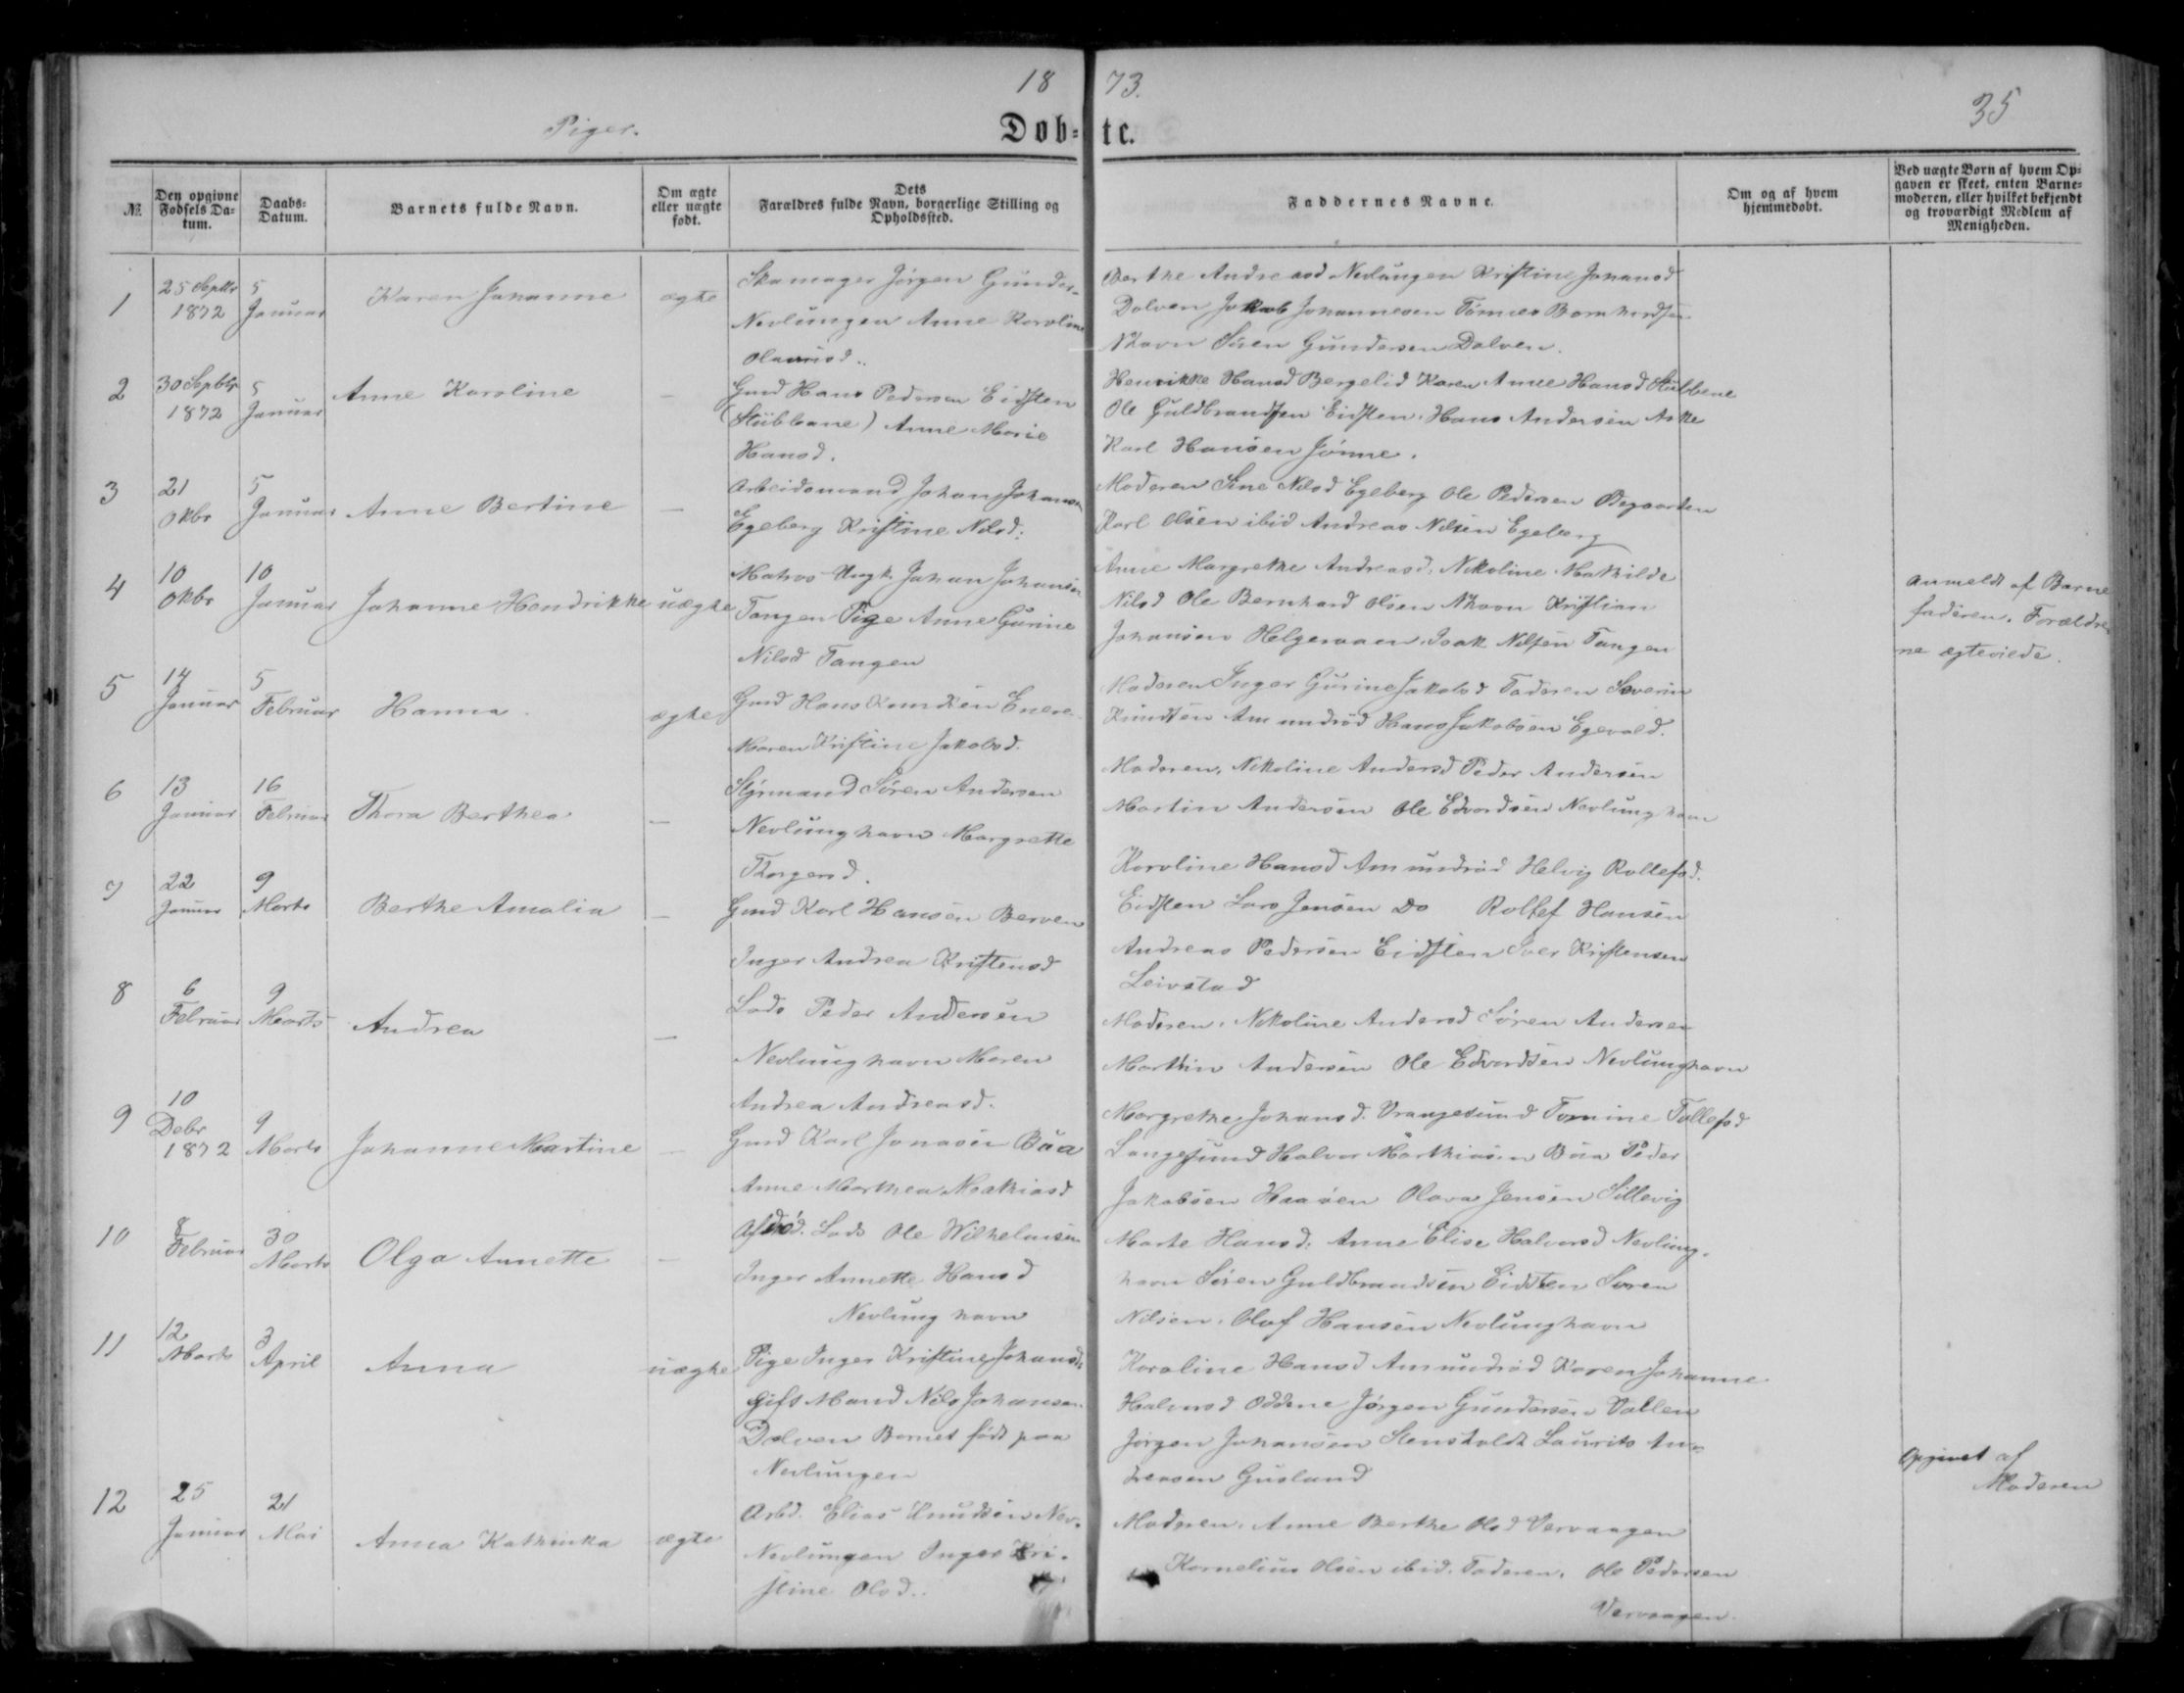 18 73.
35
Piger. Døb- te.
№
Den opgivne Fødsels Da- tum.
Daabs- Datum.
Barnets fulde Navn.
Om ægte eller uægte født.
Dets Forældres fulde Navn, borgerlige Stilling og Opholdssted.
Faddernes Navne.
Om og af hvem hjemmedøbt.
Ved uægte Børn af hvem Op- gaven er skeet, enten Barne- moderen, eller hvilket bekjendt og troværdigt Medlem af Menigheden.
1 25 Septbr 1872 5 Januar Karen Johanne ægte
Skomager Jørgen Gunder-
Nevlungen Anne Karoline
Olausd.
Berthe Andreasd Nevlungen Kristine Johansd
Dolven Jakob Johannesen Tønnes Bernhardsen
Nhavn Søren Gundersen Dolven.
2 30 Septbr 1872 5 Januar Anne Karoline —
Gmd Hans Pedersen Eidsten
(Stübbane) Anne Marie
Hansd.
Henrikke Hansd Bergelid Karen Anne Hansd Stubbene
Ole Guldbrandsen Eidsten. Hans Andersen Aske
Karl Hansen Jönne.
3 21 Okbr 5 Januar Anne Bertine —
Arbeidsmand Johan Johansen
Egeberg Kristine Nilsd.
Moderen Sine Nilsd Egeberg Ole Pedersen Ødegaarden
Karl Olsen ibid Andreas Nilsen Egeberg
4 10 Okbr 10 Januar Johanne Hendrikke uægte
Matros Ungk. Johan Johansen
Tangen Pige Anne Gurine
Nilsd Tangen
Anne Margrethe Andreasd. Nikoline Mathilde
Nilsd Ole Bernhard Olsen Nhavn Kristian
Johansen Helgeroaen. Isak Nilsen Tangen
Anmeldt af Barne
faderen. Forældre
ne ægteviede.
5 14 Januar 5 Februar Hanna. ægte
Gmd Hans Knudsen
Maren Kristine Jakobsd.
Moderen Inger Gurine Jakobsd Faderen Severin
Knudsen Amundrød Hans Jakobsen Egevold.
6 13 Januar 16 Februar Thora Berthea —
Styrmand Søren Andersen
Nevlunghavn Margrethe
Thorgersd.
Moderen. Nikoline Andersd Peder Andersen
Martin Andersen Ole Edvardsen Nevlunghavn
7 22 Januar 9 Marts Berthe Amalia —
Gmd Karl Hansen Berven
Inger Andrea Kristensd
Karoline Hansd Amundrød Helvig Rollefsd.
Eidsten Lars Jensen Do Rollef Hansen
Andreas Pedersen Eidsten Iver Kristensen
Leivstad
8 6 Februar 9 Marts Andrea —
Lods Peder Andersen
Nevlunghavn Maren
Andrea Andreasd.
Moderen. Nikoline Andersd Søren Andersen
Marthin Andersen Ole Edvardsen Nevlunghavn
9 10 Debr 1872 9 Marts Johanne Martine —
Gmd Karl Jonasen Bua
Anne Marthea Mathiasd
Margrethe Johansd. Vrangesund Tomine Tollefsd
Langesund Halvor Marthiasen Bua Peder
Jakobsen Haasen Olava Jensen Sillevig
10 8 Februar 30 Marts Olga Annette —
Afdød. Lods Ole Wilhelmsen
Inger Annette Hansd
Nevlung havn
Marte Hansd. Anne Elise Halvorsd Nevlung-
havn Søren Guldbrandsen Eidsten Søren
Nilsen. Olaf Hansen Nevlunghavn
11 12 Marts 3 April Anna uægte
Pige Inger Kristine Johansd.
Gift Mand Nils Johansen
Dolven Barnet født paa
Nevlungen
Karoline Hansd Amundrød Karen Johanne
Halvorsd Oddene Jørgen Gundersen Vallen
Jørgen Johansen Stensholdt Laurits An-
dersen Gusland
Opgivet af
Moderen
12 25 Januar 21 Mai Anna Kathinka ægte
Arbd. Elias Knudsen Nev.
Nevlungen Inger Kri-
stine Olsd.
Moderen. Anne Berthe Olsd Vervaagen
Kornelius Olsen ibid. Faderen. Ole Pedersen
Vervaagen.